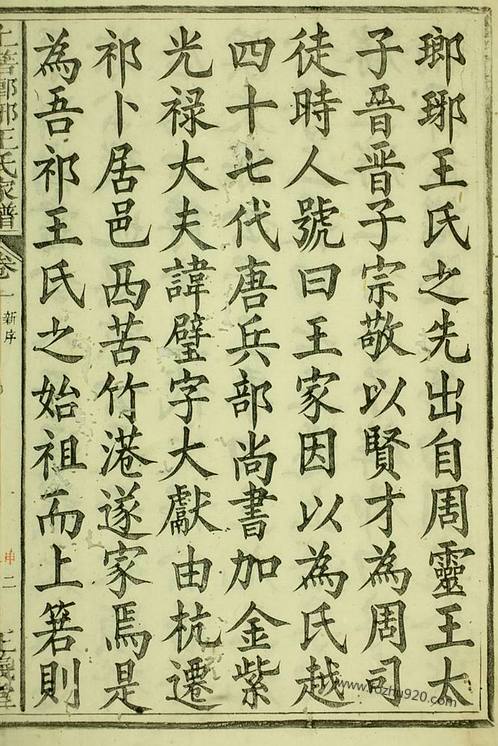 瑯琊王氏之先出自周靈王太
子晉晉子宗敬以賢才為周司
徒時人號曰王家因以為氏越
四十七代唐兵部尚書加金紫
光祿大夫諱璧字大獻由杭遷
祁卜居邑西苦竹港遂家焉是
為吾祁王氏之始祖而上箬則
王氏家譜
卷一
新序
二